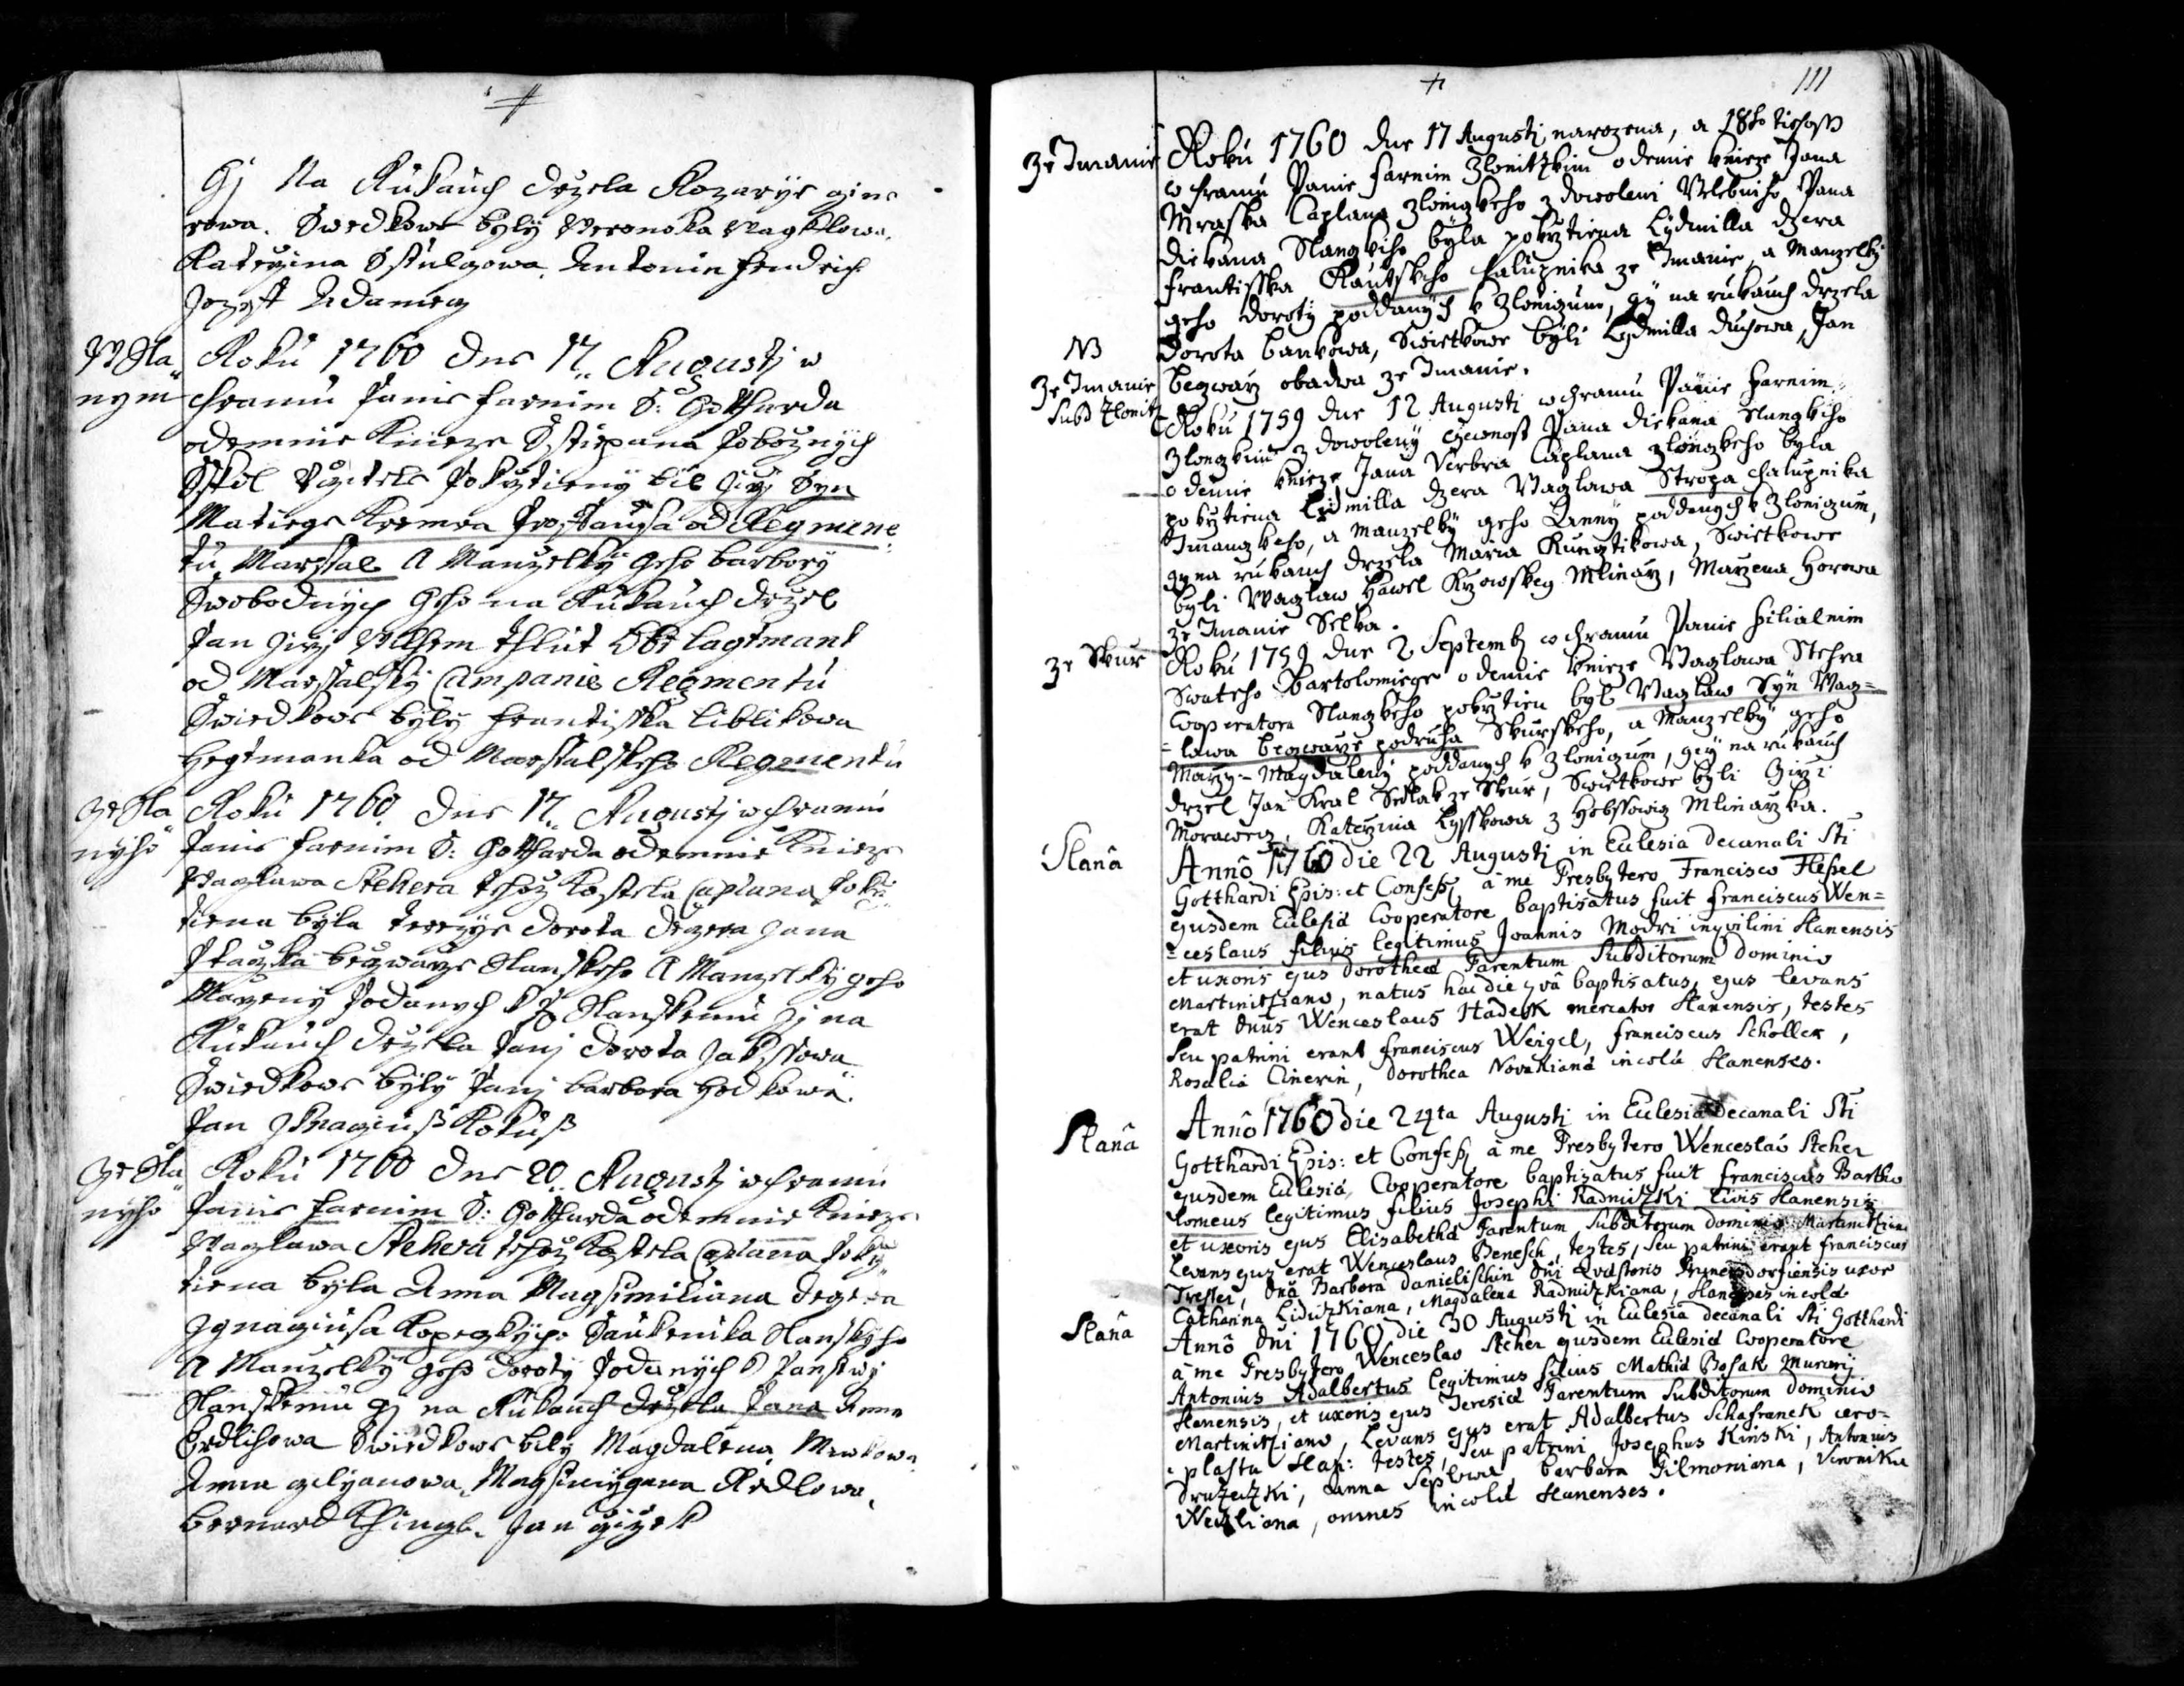 Gj Na Rukauch držela Rozarye gine
rowa. Swedkowe byly Veronika Wagklowa.
Kateržina Sstulgowa. Antonin Hendrich
Jozeff Adamecz
W Sla
nym
Roku 1760 dne 17. Augustj w
chramu Panie farnim S: Gottharda
odemnie knieze Sstiepana Pobožnych
Sskol Pokrztieny bil Jirzj Syn
Matiege Kremera od Regmene
tu Marssal A Manzelky geho barbory
Swobodnych geho na Rukauch držel
Pan Jirzj Obr lagtmant
od Marssalsky Campanie Regmentu
Swiedkowe byly frantisska liblikowa
hegtmanka od Marssalskeho Regmentu
Ze Sla
nyho
Roku 1760 dne 17. Augustj w chramu
Panie farnim S: Gottharda odemnie knieze
Waczlawa Stehera tehož kostela Caplana Pokrz
tiena byla Terezye dorota dczera Jana
bezwarze Slanskeho A Manzelky geho
Marzeny Podanych k P Slanskemu Gj na
Rukauch držela Panj dorota Jakssowa
Swiedkowe byly Panj barbora hodkowa.
Pan Ignaczius Kokuss
Ze Sla
nyho
Roku 1760 dne 20. Augustj w chramu
Panie farnim S: Gottharda odemnie knieze
Waczlawa Stehera tehož kostela Caplana Pokrz
tiena byla Anna Magsimiliana dczera
Ignacziusa Kopeczkyho Saukenika Slanskyho
A Manzelky geho doroty Podanych k Panstwj
Slanskemu gj na Rukauch držela Pana Anna
Erdlichowa Swiedkowe bily Magdalena
Anna Magsimigana Riedlowa.
bernard Jan Cžižek
111
Ze Imanie
Roku 1760 dne 17 Augusti narozena, a 18ho tiehoss
w chramu Panie farnim Zlonitzkim odemie knieze Jana
Mraska Caplana Zloniczkeho z dowoleni Velebniho Pana
diekana Slangkiho byla pokrztiena Lydmilla dczera
Frantisska Rautskeho chalupnika ze Imanie, a Manzelky
geho doroty poddanych k Zloniczum, gy na rukauch drzela
dorota bankowa, Swietkowe byli Lydmilla duchowa, Jan
bezwarz obadwa ze Imanie.
NB
Ze Imanie
Subd Zlonitz
Roku 1759 dne 12 Augusti w chramu Panie Farnim
Zlonczkim z dowoleny Pana diekana Slangkiho
odemie knieze Jana Verbra Caplana Zlonczkeho byla
pokrztiena Lidmilla dczera Waczlawa Stropa chalupnika
Imangkeho, a Manzelky geho Anny poddanych k Zloniczum,
gy na rukauch drzela Maria Runcztikowa, Swietkowe
byli Waczlaw Hawel Kyzowskeg Mlinarz, Marzena Horowa
ze Imanie Selka.
Ze Skur
Roku 1759 dne 2 Septemb w chramu Panie Filialnim
Swateho Bartolomiege odemie knieze Waczlawa Stehra
Cooperatora Slangkeho pokrztien byl Waczlaw Syn Wacz=
=lawa bezwarze podruha Skurskeho, a Manzelky geho
Marzy-Magdaleny poddanych k Zloniczum, gey na rukauch
drzel Jan Kral Sedlak ze Skur, Swietkowe byli Girzi
Morawecz, Katerzina Lysskowa z Hobssowicz Mlinarzka.
Slanâ
Annô 1760 die 22 Augusti in Eclesia decanali Sti
Gotthardi Epis: et Confess à me Presbytero Francisco Hessel
ejusdem Eclesiæ Cooperatore baptisatus fuit franciscus Wen=
=ceslaus filius legitimus Joannis Modri inquilini Slanensis
et uxoris ejus dorotheæ Parentum Subditorum dominio
Martinitziano, natus hac die quâ baptisatus, ejus levans
erat dnus Wenceslaus Hadek mercator Slanensis, testes
seu patrini erant franciscus Weigel, franciscus Scholler,
Rosalia Cinerin, dorothea Novakiana incolæ Slanenses.
Slanâ
Annô 1760 die 24ta Augusti in Eclesia decanali Sti
Gotthardi Epis: et Confess à me Presbytero Wenceslaô Steher
ejusdem Eclesiæ Cooperatore baptisatus fuit franciscus Bartho
lomeus legitimus filius Josephi Radnitzki civis Slanensis
et uxoris ejus Elisabethæ Parentum Subditorum dominio Martinitzian
Levans ejus erat Wenceslaus Benesch, testes, seu patrini erant franciscus
Tresler, dnâ Barbora danielischin dni Quæstoris uxor
Catharina Liduzkiana, Magdalena Radnitzkiana, Slanenses incolæ
Slanâ
Annô dni 1760 die 30 Augusti in Eclesia decanali Sti Gotthardi
à me Presbytero Wenceslao Steher ejusdem Eclesiæ Cooperatore
Antonius Adalbertus legitimus filius Mathiæ Bosak
Slanensis, et uxoris ejus Teresiæ Parentum Subditorum dominio
Martinitziano, Levans ejus erat Adalbertus Schafranek cero=
plasta Slan: testes, seu patrini Josephus Kinski, Antonius
Druzetzki, Anna Seplowa, barbora Filmoniana, Veronika
Weizliana, omnes incolæ Slanenses.